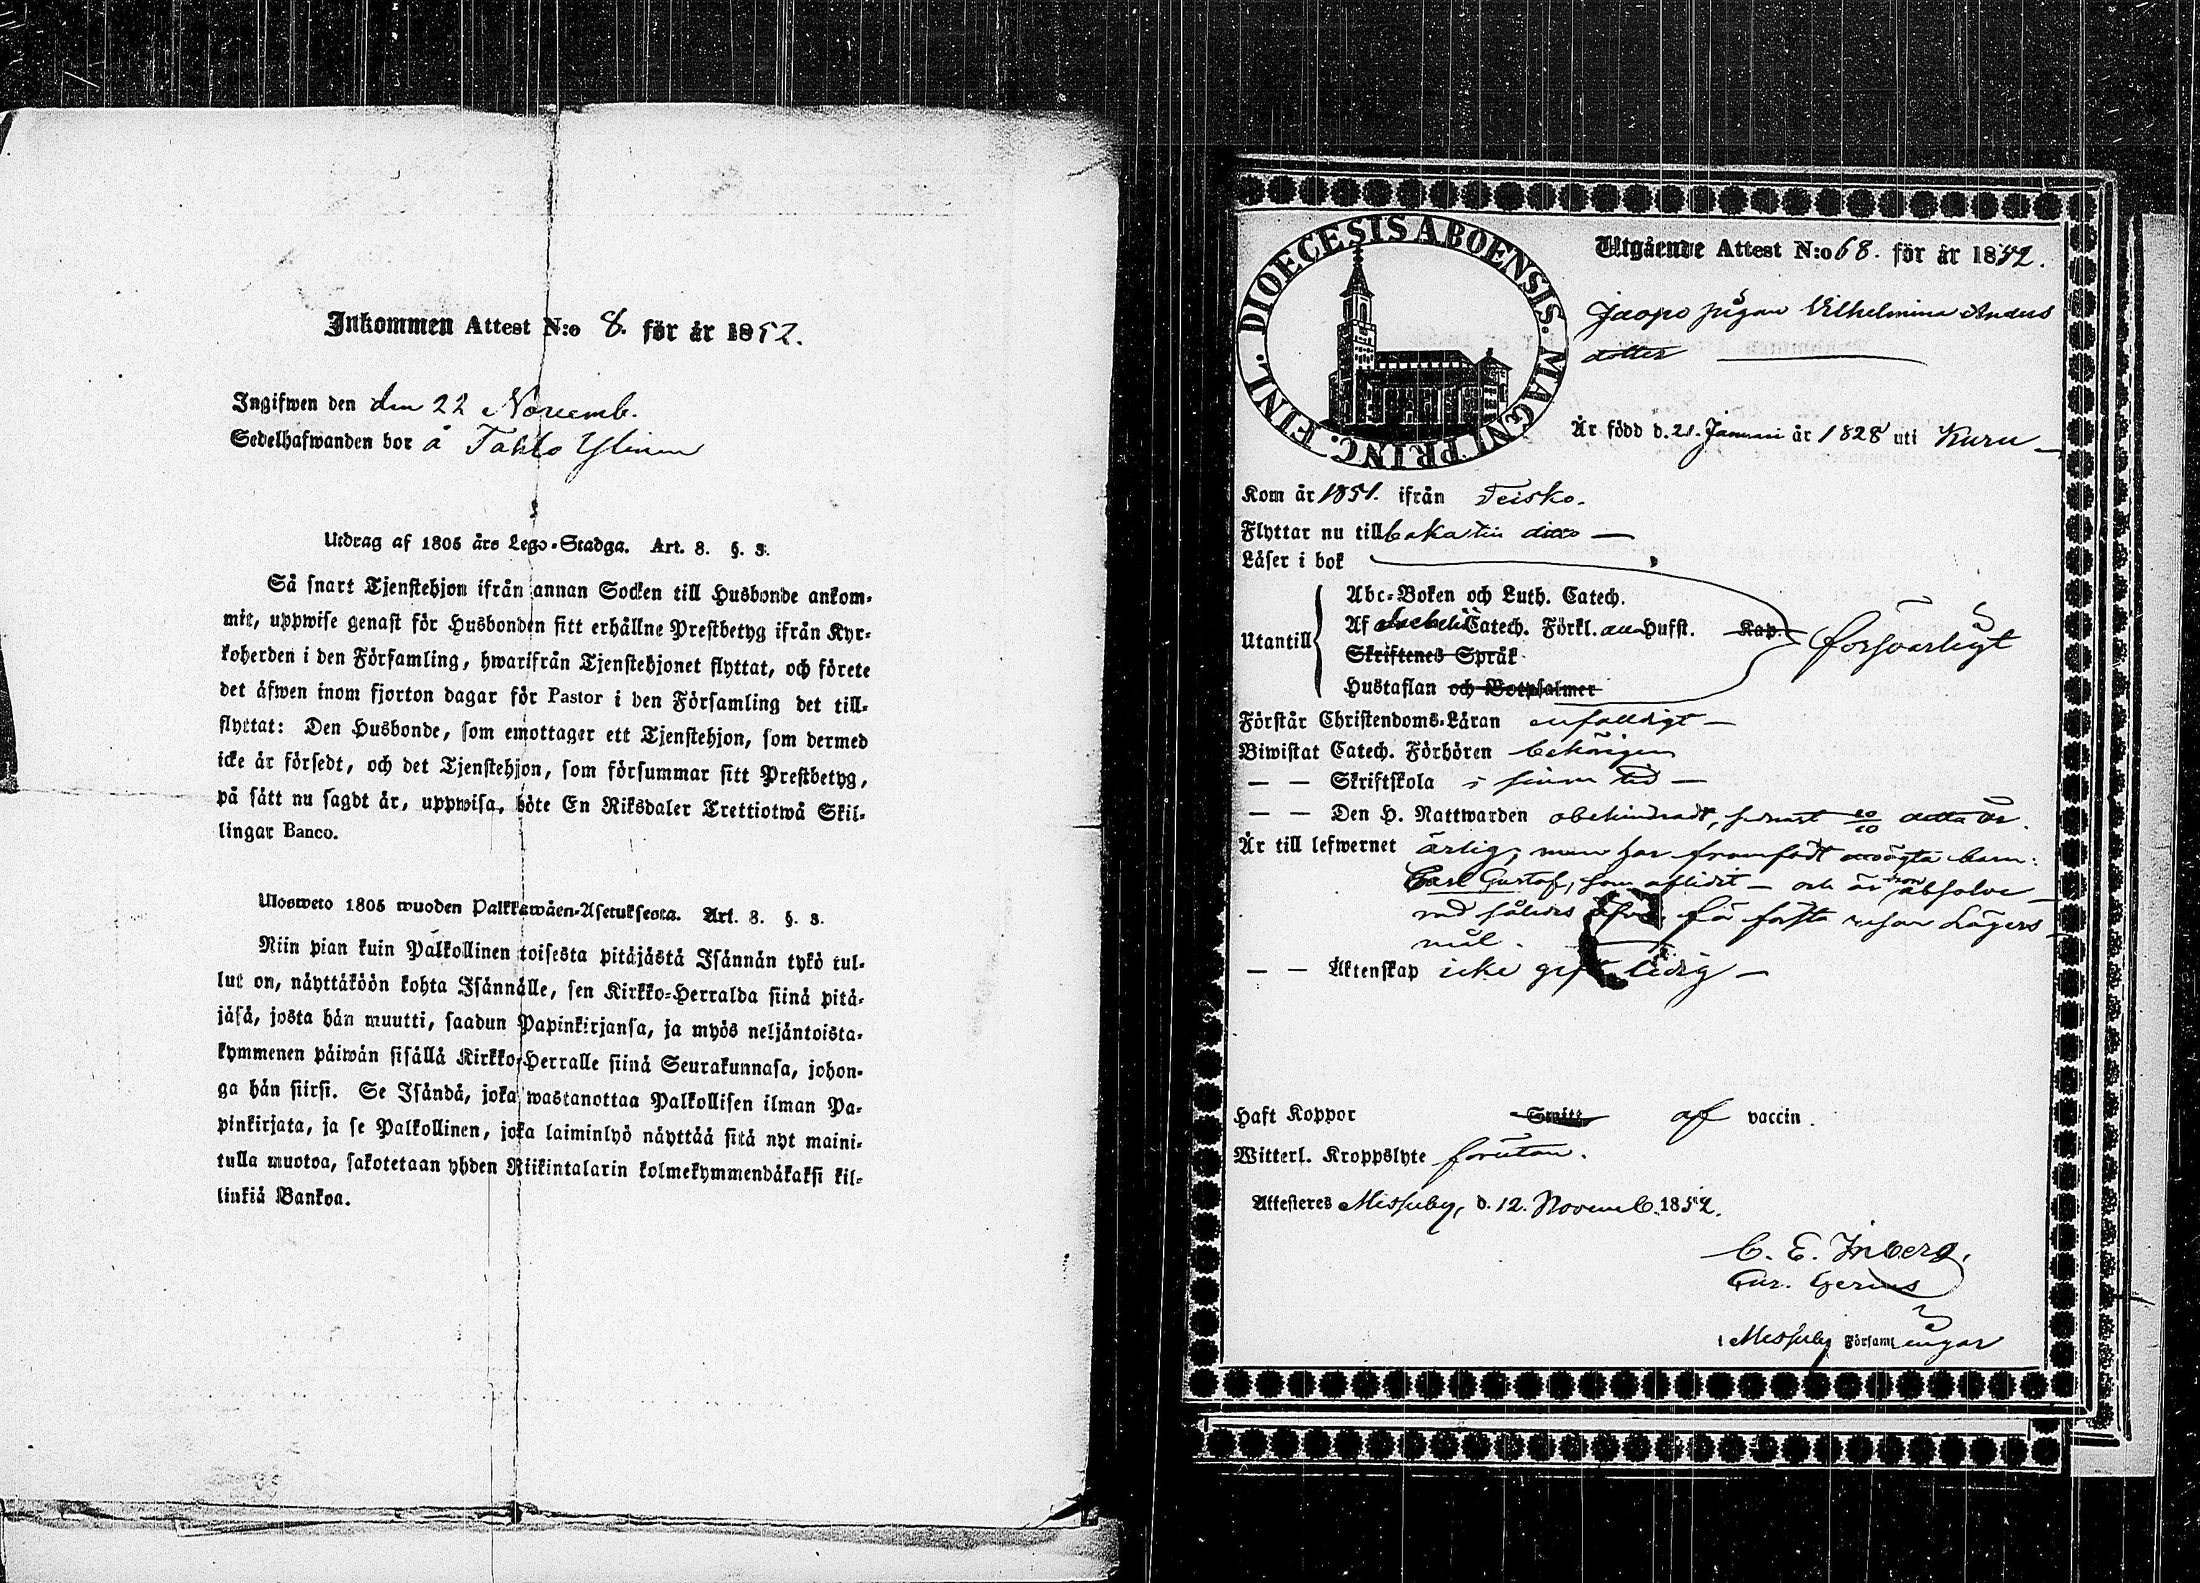 Inkommen Attest N:o 8. för år 1852.
Ingifwen den den 22 Novemb.
Sedelhafwanden bor å Tahlo Ylinen
Utdrag af 1805 års Lego-Stadga. Art. 8. §. 3.
Så snart Tjenstehjon ifrån annan Socken till Husbonde ankom-
mit, uppwise genast för Husbonden sitt erhållne Prestbetyg ifrån Kyr-
koherden i den Församling, hwarifrån Tjenstehjonet flyttat, och förete
det äfwen inom fjorton dagar för Pastor i den Församling det till-
flyttat: Den Husbonde, som emottager ett Tjenstehjon, som dermed
icke är försedt, och det Tjenstehjon, som försummar sitt Prestbetyg,
på sätt nu sagdt är, uppwisa, böte En Riksdaler Trettiotwå Skil-
lingar Banco.
Ulosweto 1805 wuoden Palkkawäen-Asetuksesta. Art. 8. §. 3.
Niin pian kuin Palkollinen toisesta pitäjästä Isännän tykö tul-
lut on, näyttäköön kohta Isännälle, sen Kirkko-Herralda siinä pitä-
jäsä, josta hän muutti, saadun Papinkirjansa, ja myös neljäntoista-
kymmenen päiwän sisällä Kirkko-Herralle siinä Seurakunnasa, johon-
ga hän siirsi. Se Isändä, joka wastanottaa Palkollisen ilman Pa-
pinkirjata, ja se Palkollinen, joka laiminlyö näyttää sitä nyt maini-
tulla muotoa, sakotetaan yhden Riikintalarin kolmekymmendäkaksi kil-
linkiä Bankoa.
DIOECESIS ABOENSIS. MAGNI PRINC. FINL.
Utgående Attest N:o 68. för år 1852.
Jaopo pigan Vilhelmina Anders
dotter
Är född d. 21. Januari år 1828 uti Kuru
Kom år 1851. ifrån Teisko.
Flyttar nu tillbaka till ditto
Läser i bok
Utantill
Abc-Boken och Luth. Catech.
Af Svebelii Catech. Förkl. Hufst. Kap.
Skriftenes Språk
Hustaflan och Botpsalmer
försvarligt
Förstår Christendoms-Läran enfalldigt
Biwistat Catech. Förhören behörigen
— — Skriftskola i sinom tid
— — Den H. Nattwarden obehindradt, senast 10/10 detta år.
Är till lefwernet ärlig; men har framfödt oäkta barn:
Carl Gustaf, som aflidit — och är absolve
rad således för första resan Lägers
mål.
— — Äktenskap icke gift ledig
Haft Koppor af vaccin.
Witterl. Kroppslyte förutan.
Attesteras Messuby, d. 12. Novemb. 1852.
C. E. Inberg.
i Messuby Församlingar